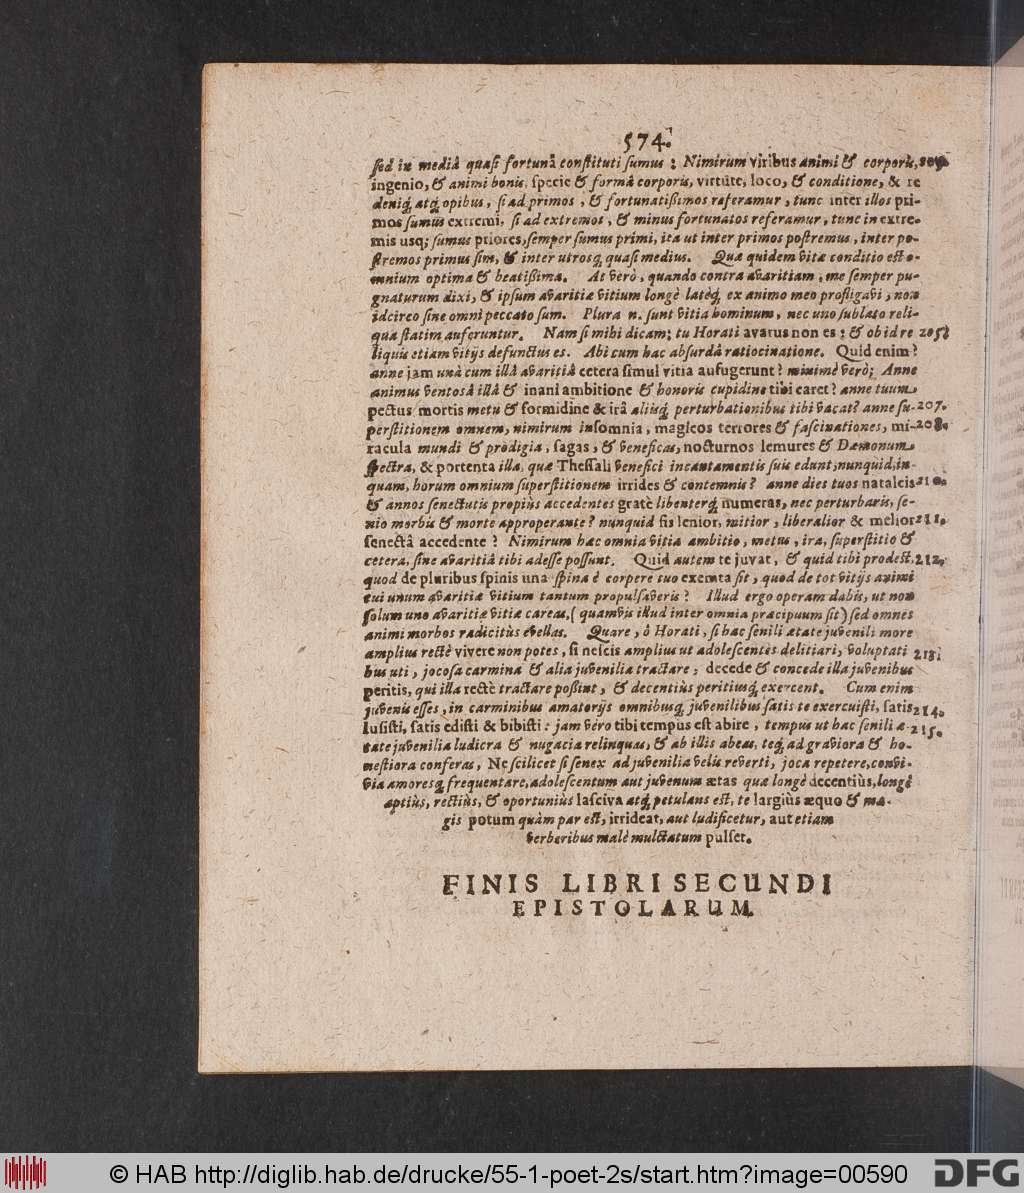 574.
sed in mediâ quasi fortunâ constituti sumus : Nimirum viribus animi & corporis,
ingenio, & animi bonis, specie & formâ corporis, virtute, loco, & conditione, & re
deniq; atq; opibus, si ad primos , & fortunatißimos referamur , tunc inter illos pri-
mos sumus extremi, si ad extremos , & minus fortunatos referamur, tunc in extre-
mis usq; sumus priores, semper sumus primi, ita ut inter primos postremus , inter po-
stremos primus sim, & inter utrosq; quasi medius. Quæ quidem vitæ conditio est o-
mnium optima & beatißima. At verò , quando contra avaritiam , me semper pu-
gnaturum dixi, & ipsum avaritiæ vitium longè latèq; ex animo meo profligavi , non
idcirco sine omni peccato sum. Plura n. sunt vitia hominum , nec uno sublato reli-
qua statim auferuntur. Nam si mihi dicam; tu Horati avarus non es ; & ob id re 205.
liquis etiam vitijs defunctus es. Abi cum hac absurdâ ratiocinatione. Quid enim ?
anne jam unà cum illâ avaritiâ cetera simul vitia aufugerunt ? minimè verò; Anne
animus ventosâ illâ & inani ambitione & honoris cupidine tibi caret ? anne tuum
pectus mortis metu & formidine & irâ aliisq; perturbationibus tibi vacat? anne su- 207.
perstitionem omnem, nimirum insomnia, magicos terrores & fascinationes, mi- 208.
racula mundi & prodigia , sagas , & veneficas, nocturnos lemures & Dæmonum
spectra, & portenta illa, quæ Thessali venefici incantamentis suis edunt; nunquid, in-
quam, horum omnium superstitionem irrides & contemnis? anne dies tuos nataleis 210.
& annos senectutis propiùs accedentes gratè libenterq; numeras, nec perturbaris, se-
nio morbis & morte approperante ? nunquid fis lenior, mitior , liberalior & melior 211.
senectâ accedente ? Nimirum hac omnia vitia ambitio , metus , ira, superstitio &
cetera, sine avaritiâ tibi adesse possunt. Quid autem te juvat, & quid tibi prodest, 212.
quod de pluribus spinis una spina è corpore tuo exemta sit , quod de tot vitijs animi
tui unum avaritiæ vitium tantum propulsaveris ? Illud ergo operam dabis, ut non
solum uno avaritiæ vitiæ careas, ( quamvis illud inter omnia præcipuum sit ) sed omnes
animi morbos radicitùs evellas. Quare , ô Horati, si hac senili ætate juvenili more
amplius rectè vivere non potes , si nescis amplius ut adolescentes delitiari, voluptati 213.
bus uti , jocosa carmina & alia juvenilia tractare ; decede & concede illa juvenibus
peritis, qui illa rectè tractare poßint , & decentiùs peritiusq; exercent. Cum enim
juvenis esses , in carminibus amatorijs omnibusq; juvenilibus satis te exercuisti, satis 214.
lusisti, satis edisti & bibisti : jam vero tibi tempus est abire , tempus ut hac senili æ- 215.
tate juvenilia ludicra & nugacia relinquas, & ab illis abeas, teq; ad graviora & ho-
nestiora conferas, Ne scilicet si senex ad juvenilia velis reverti, joca repetere, convi-
via amoresq; frequentare, adolescentum aut juvenum ætas quæ longè decentiùs, longè
aptiùs, rectiùs, & oportuniùs lasciva atq; petulans est, te largiùs æquo & ma-
gis potum quàm par est, irrideat, aut ludificetur, aut etiam
verberibus malè mulctatum pulset.
FINIS LIBRI SECUNDI
EPISTOLARUM.
© HAB http://diglib.hab.de/drucke/55-1-poet-2s/start.htm?image=00590
DFG